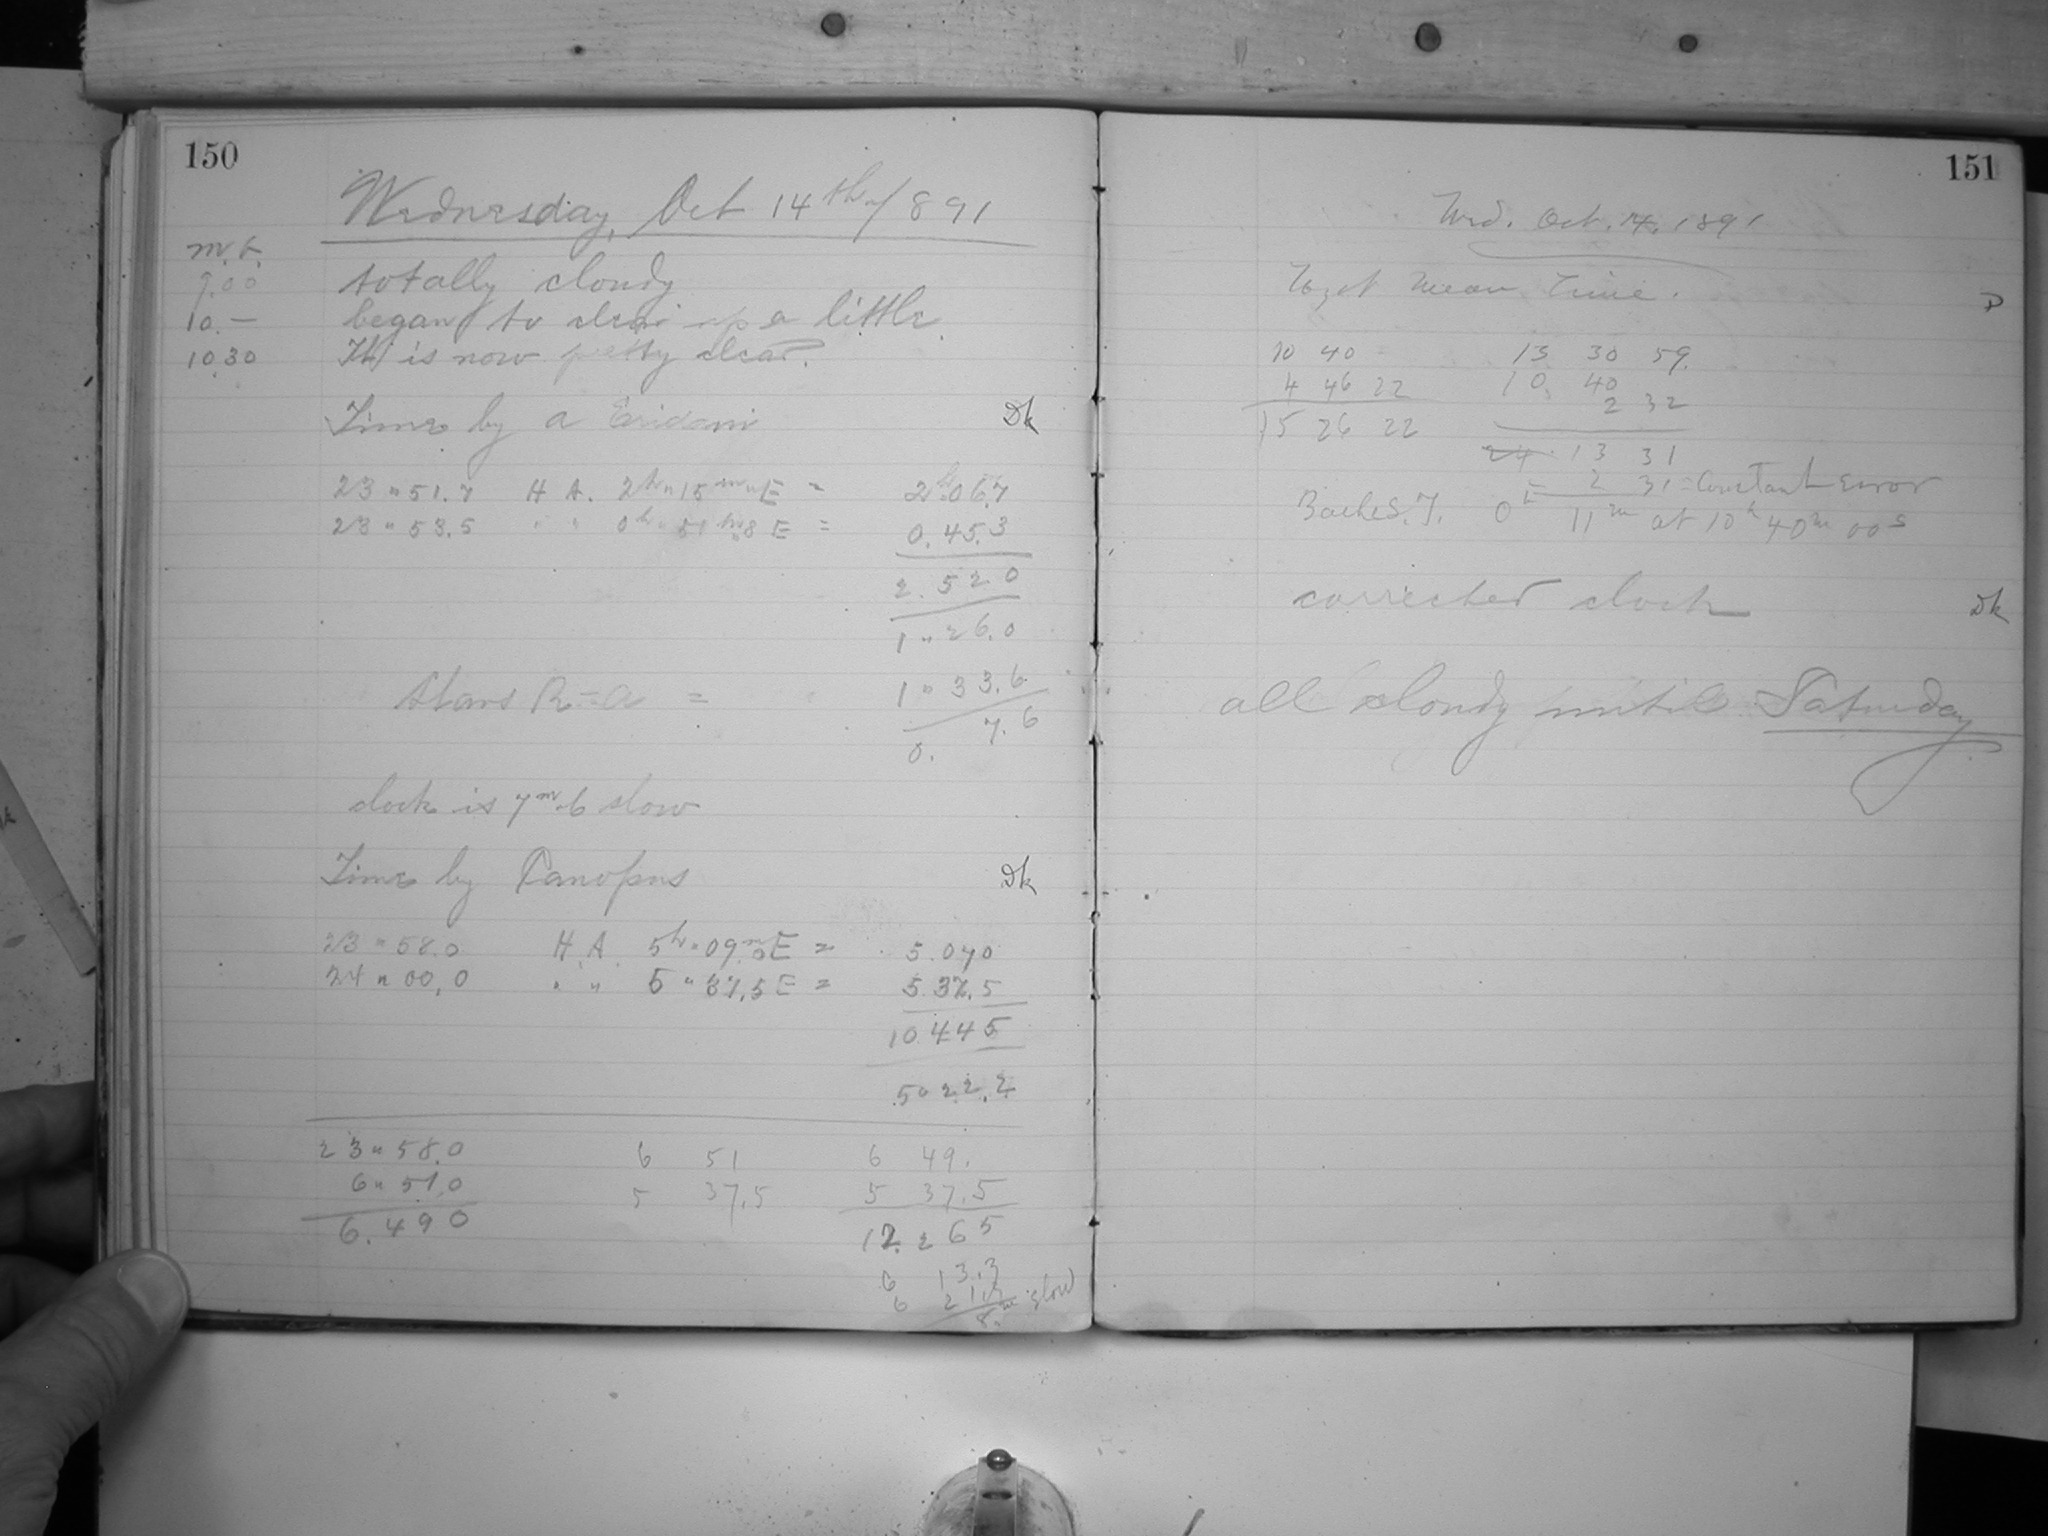 150
Wednesday, Oct 14th 1891
m.t.
9.00 totally cloudy
10.— began to clear up a little
10.30 It is now pretty clear.
Time by a Eridani Dk
23 " 51.7 H A. 2h " 15m " E = 2h.06.7
23 " 53.5 " " 0h " 51m.8 E = 0.45.3
2.520
1 " 26.0
Stars R=a = 1 " 33.6
0. 7.6
clock is 7m.6 slow
Time by Canopus Dk
23 " 58.0 H.A. 5h " 09m.0 E = 5.070
24 " 00.0 " " 5 " 37.5 E = 5.37.5
10.445
5 " 22.2
23 " 58.0 6 51 6 49.
6 " 51.0 5 37.5 5 37.5
6.490 12.265
6 13.3
6 21.3
8.m slow
151
Wed. Oct. 14, 1891
To get Mean Time. D
10 40 13 30 59
4 46 22 10 40
2 32
15 26 22
24 13 31
2 31 = Constant Error
Bache S.T. 0h 11m at 10h 40m 00s
corrected clock Dk
all cloudy until Saturday